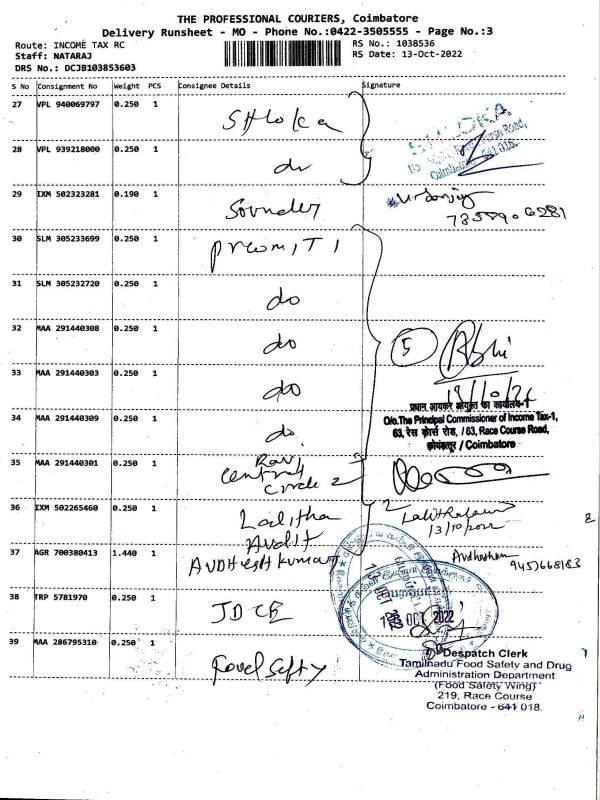 THE PROFESSIONAL COURIERS, Coimbatore
Delivery Runsheet - MO - Phone No.:0422-3505555 - Page No.:3
Route: INCOME TAX RC
RS No.: 1038536
Staff: NATARAJ
RS Date: 13-Oct-2022
DRS No.: DCJB103853603
S No Consignment No Weight PCS Consignee Details Signature
27 VPL 940069797 0.250 1 Shloka
28 VPL 939218000 0.250 1 do
Race Course Road,
Coimbatore 641 018.
29 IXM 502323281 0.190 1 Sounder
30 SLM 305233699 0.250 1
31 SLM 305232720 0.250 1 do
32 MAA 291440308 0.250 1 do
5
33 MAA 291440303 0.250 1 do
प्रधान आयकर आयुक्त का कार्यालय-1
O/o.The Principal Commissioner of Income Tax-1,
34 MAA 291440309 0.250 1 do
63, रेस कोर्स रोड, / 63, Race Course Road,
कोयंबत्तूर / Coimbatore
35 MAA 291440301 0.250 1 Ravi
Central
Circle 2
36 IXM 502265460 0.250 1 Lalitha
2
13/10/2022
Audit
37 AGR 700380413 1.440 1 Avdhesh kumar
9451668183
38 TRP 5781970 0.250 1
OCT 2022
39 MAA 286795310 0.250 1
Despatch Clerk
Tamilnadu Food Safety and Drug
Administration Department
(Food Safety Wing)
219, Race Course
Coimbatore - 641 018.